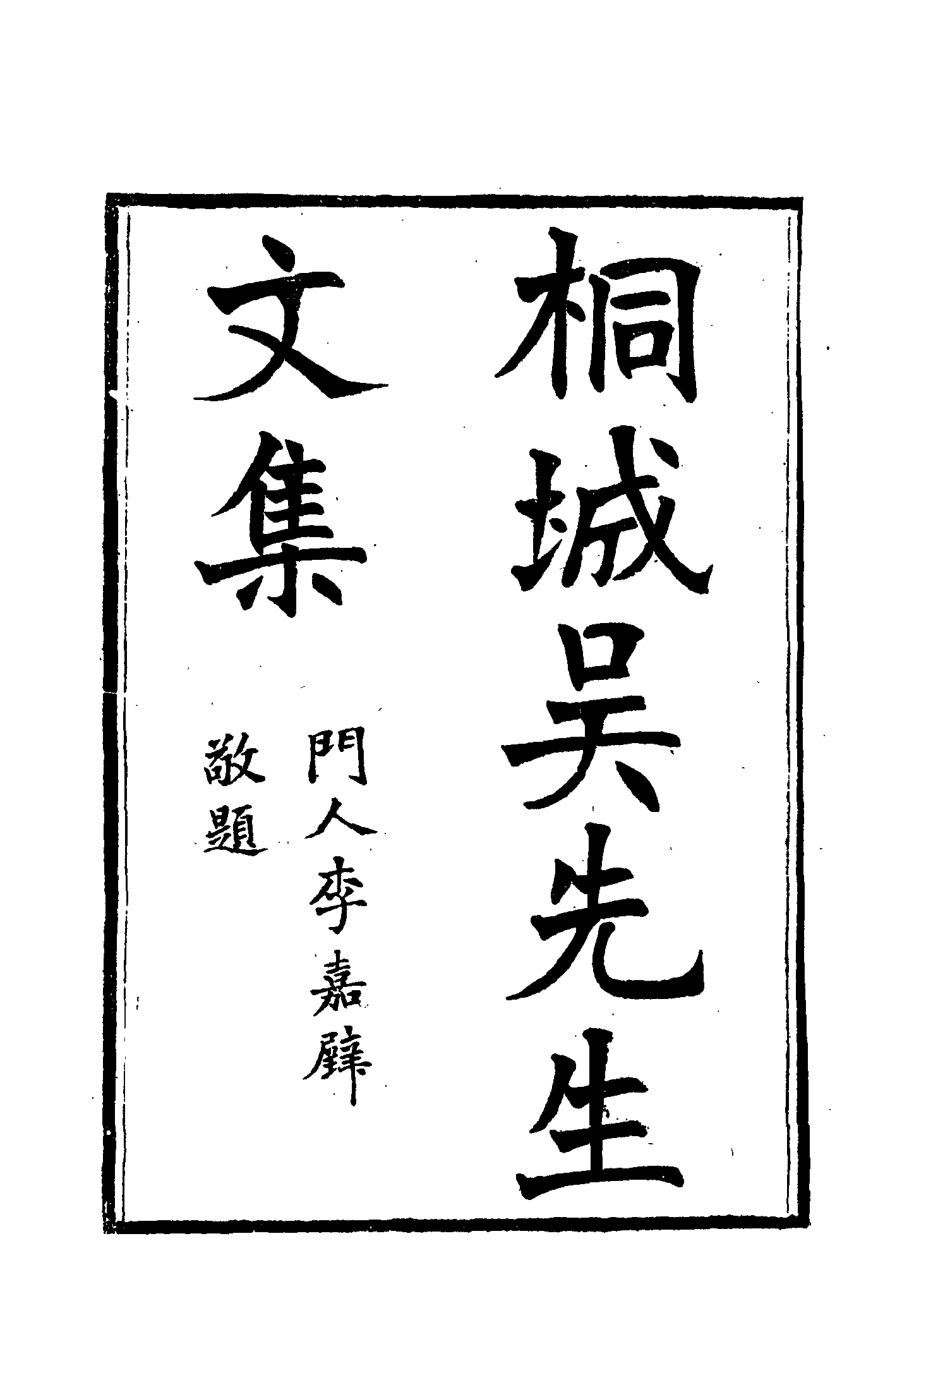 桐城吴先生
文集
門人李嘉璧
敬題